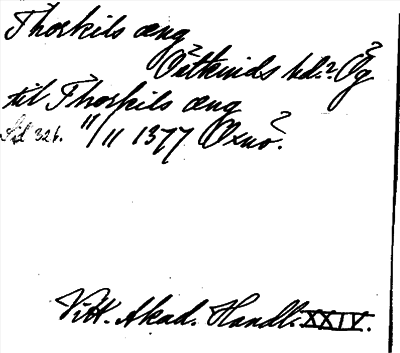 Thorkils æng
Östkinds hd.? Ög
til Thorkils æng
Sid 326. 11/11 1377 Oxnö?
Vitt. Akad. Handl. XXIV.